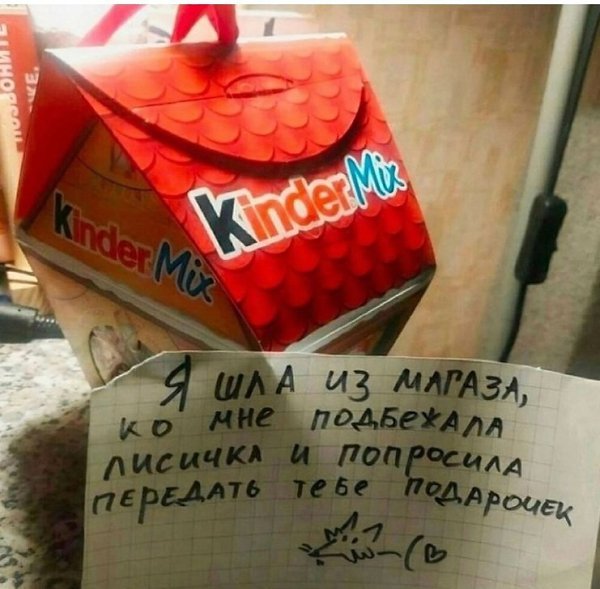 ПОЗВОНИТЕ
Kinder Mix
Kinder Mix
Я ШЛА ИЗ МАГАЗА,
КО МНЕ ПОДБЕЖАЛА
ЛИСИЧКА И ПОПРОСИЛА
ПЕРЕДАТЬ ТЕБЕ ПОДАРОЧЕК